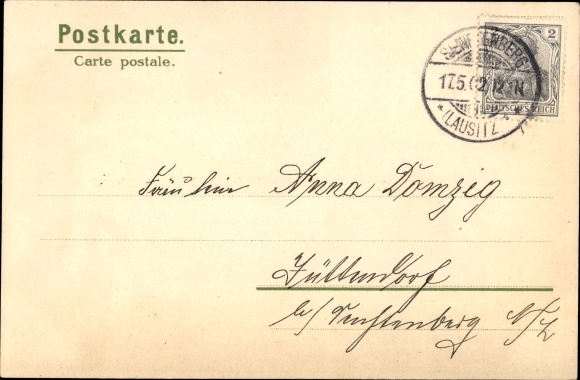 Postkarte.
Carte postale.
2
DEUTSCHES REICH
SENFTENBERG
17.5.02 12-N
*(LAUSITZ
Fräulein Anna Domzig
Jüttendorf
b/ Senftenberg N/L